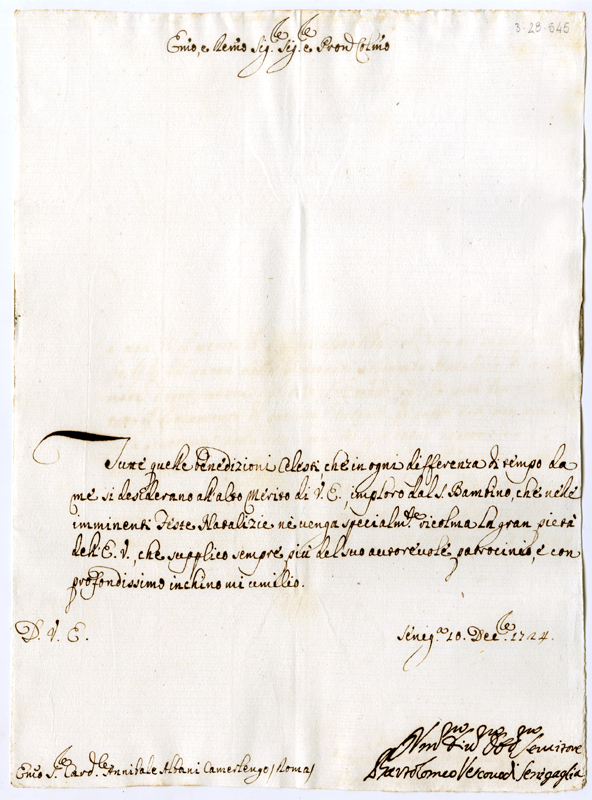 3-28-645
Emo, e Remo Sig.re Sig.re e Pron Colmo
Tutte quelle benedizioni Celesti, che in ogni differenza di tempo da
me si desiderano all'alto Merito di V. E., imploro dal S. Bambino, che nelle
imminenti Feste Natalizie ne venga specialm.te ricolma la gran pietà
dell'E. V., che supplico sempre più del suo autorevole patrocinio, e con
profondissimo inchino mi umilio.
D. V. E.
Senig.a 20. Dec.re 1724.
Um.mo Obb.mo Servitore
Emo S.re Card.le Annibale Albani Camerlengo /Roma/
Bartolomeo Vescovo di Senigaglia